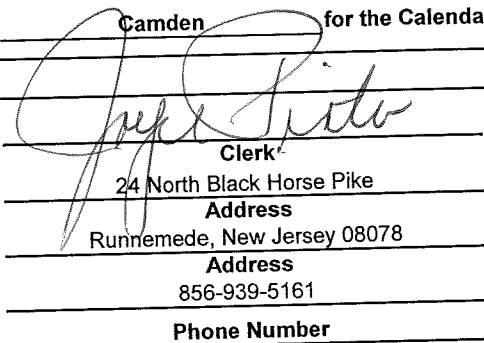 Camden for the Calenda
Joyce Pinto
Clerk
24 North Black Horse Pike
Address
Runnemede, New Jersey 08078
Address
856-939-5161
Phone Number